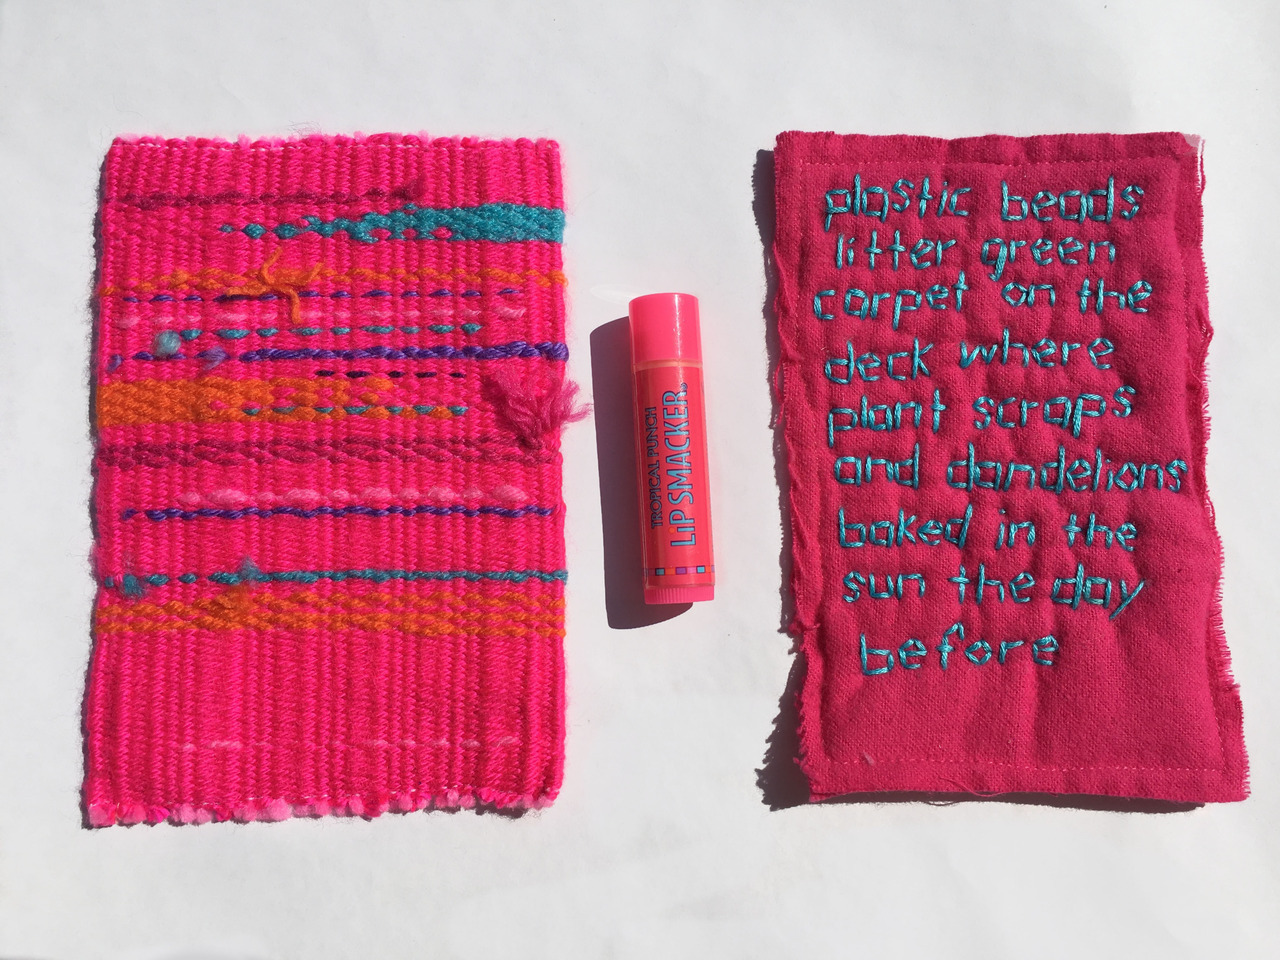 TROPICAL PUNCH
LiP SMACKER®
plastic beads
litter green
carpet on the
deck where
plant scraps
and dandelions
baked in the
sun the day
before